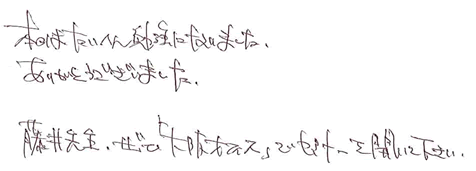 本日はたいへん勉強になりました.
ありがとうございました.
藤井先生.ぜひ「大阪オフィス」でセミナーを開いて下さい.